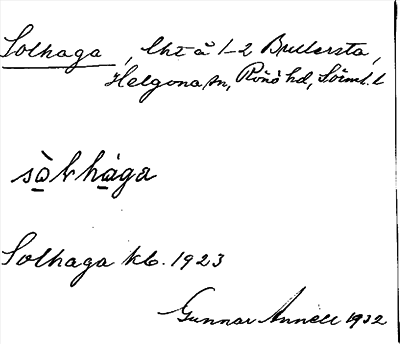 Solhaga, lht å 1-2 Brellersta,
Helgona sn, Rönö hd, Söml. l
sòlhága
Solhaga kb. 1923
Gunnar Annell 1932